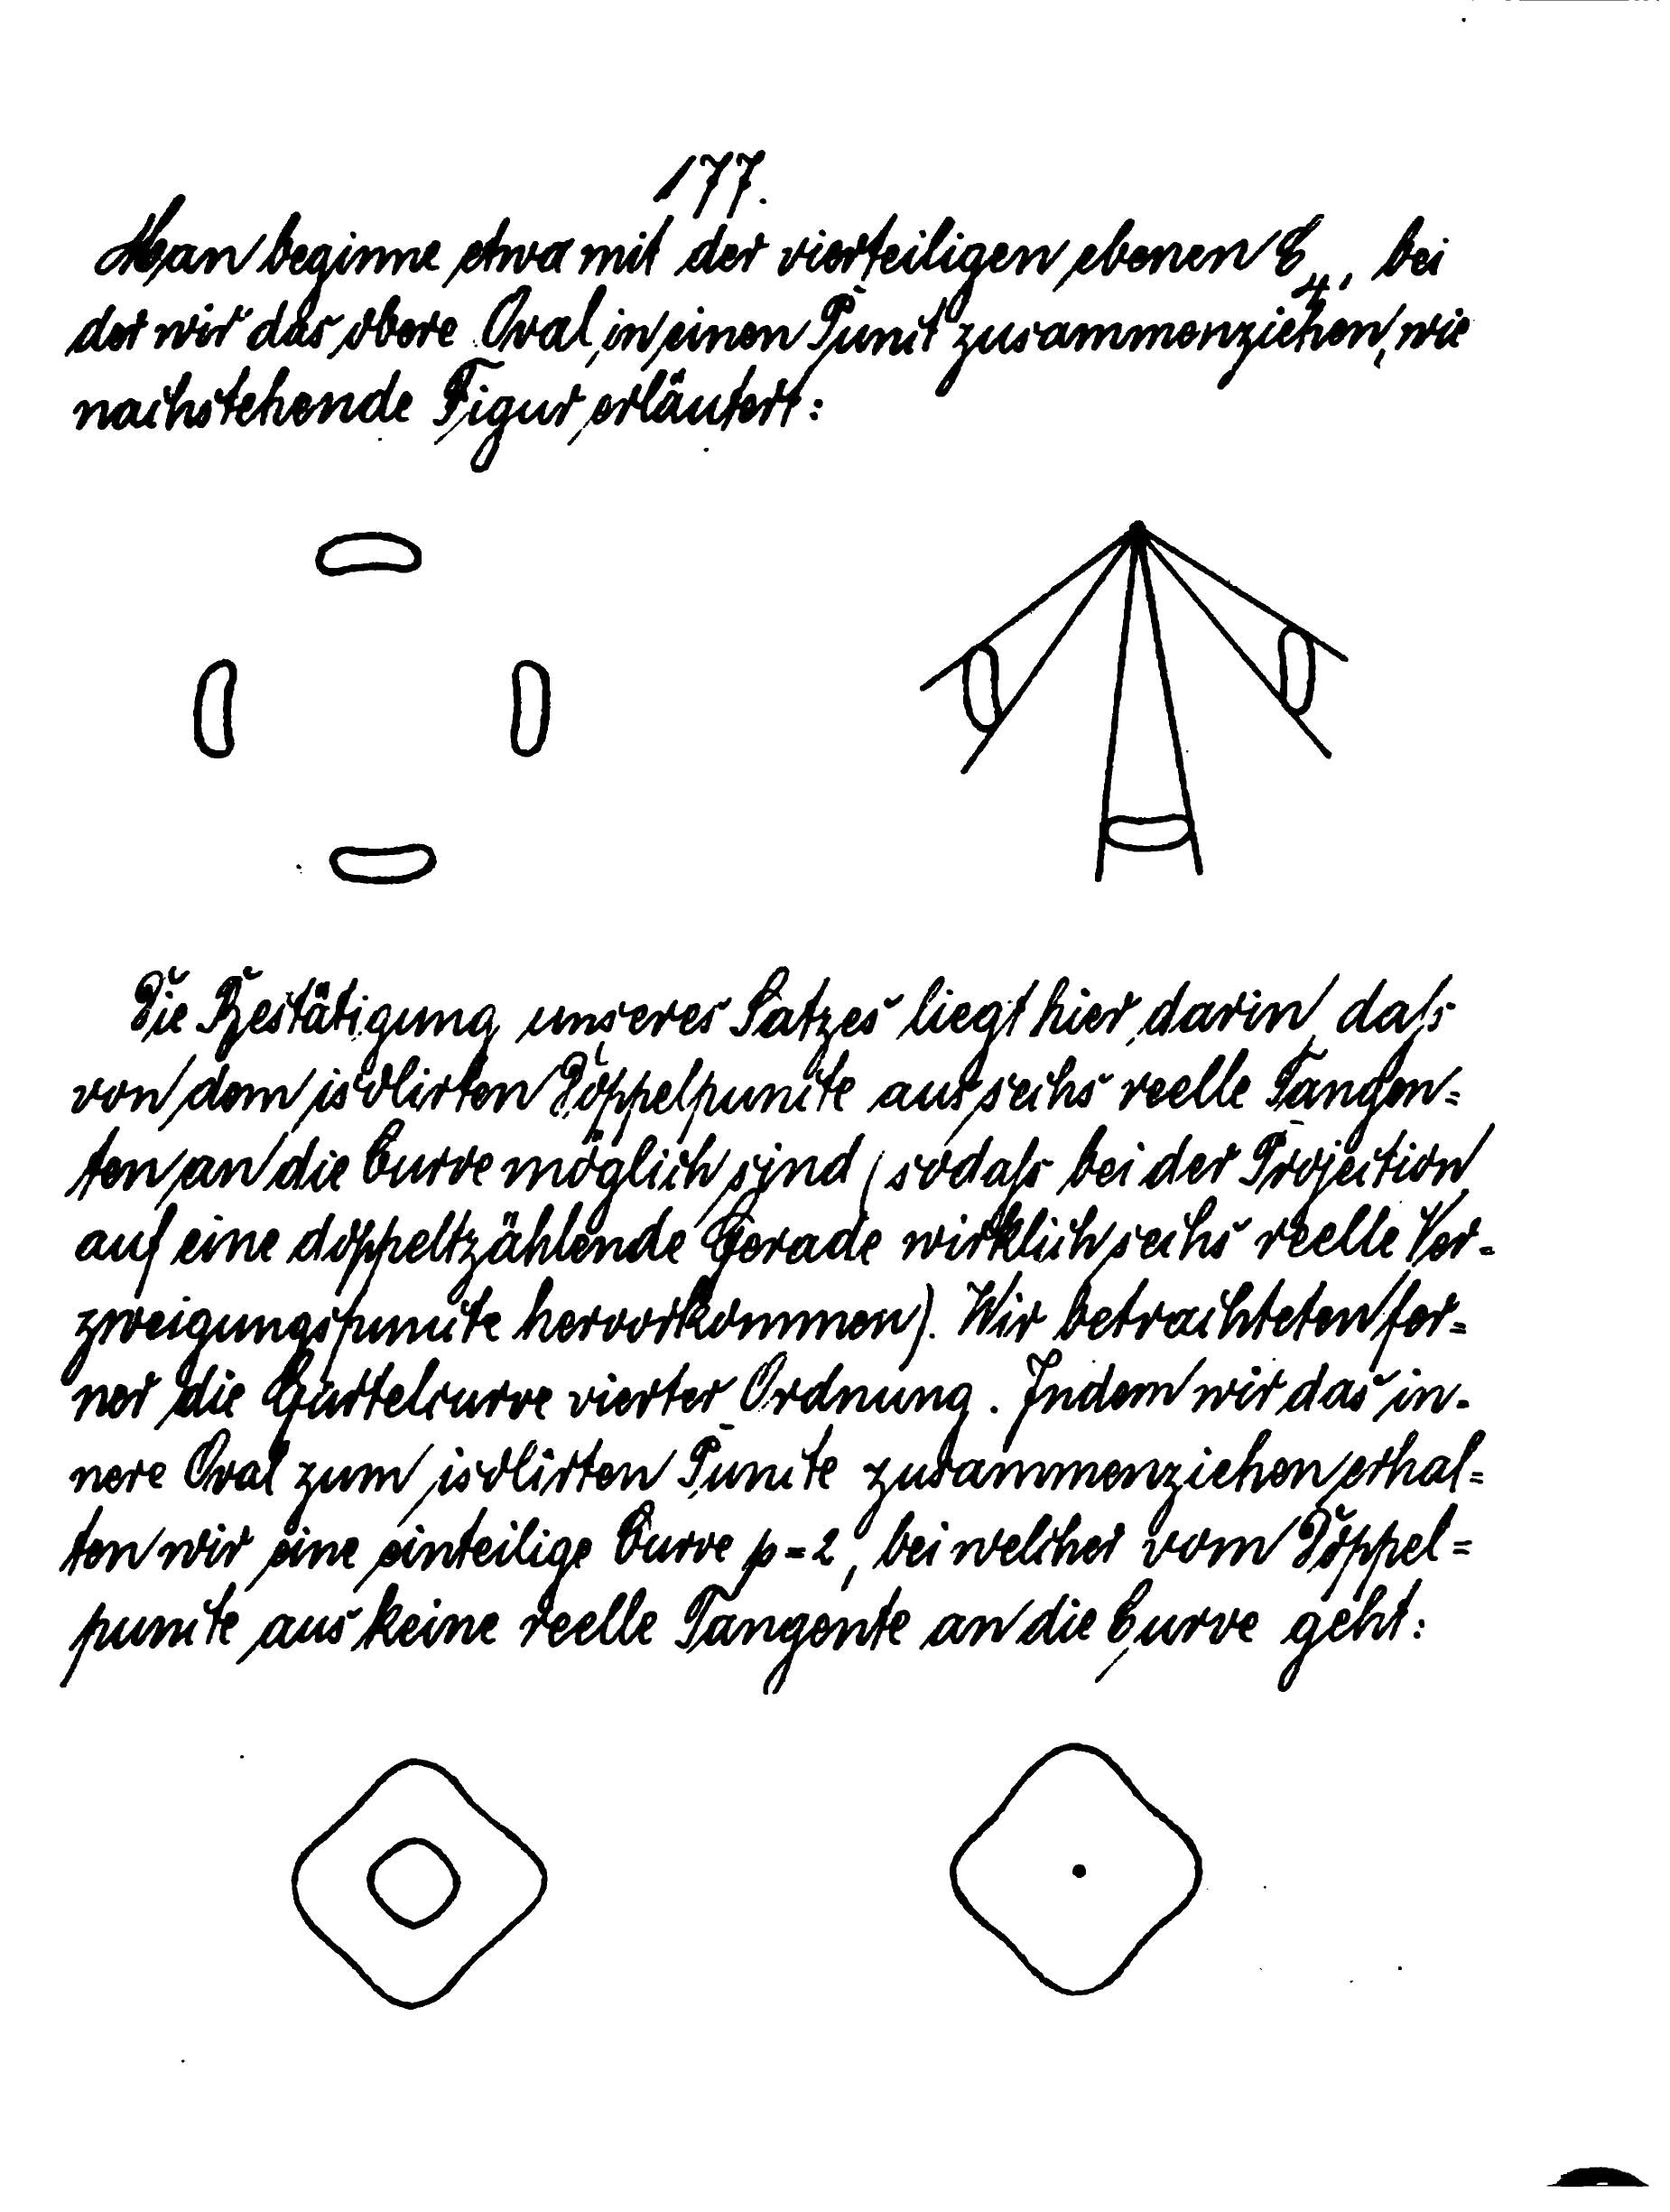 177.
Man beginne etwa mit der vierteiligen ebenen C₄, bei
der wir das obere Oval in einen Punct zusammenziehen, wie
nachstehende Figur erläutert:
Die Bestätigung unseres Satzes liegt hier darin, daſs
von dem isolirten Doppelpuncte aus sechs reelle Tangen=
ten an die Curve möglich sind (sodaſs bei der Projection
auf eine doppeltzählende Gerade wirklich sechs reelle Ver=
zweigungspuncte hervorkommen). Wir betrachteten fer=
ner die Gürtelcurve vierter Ordnung. Indem wir das in=
nere Oval zum isolirten Puncte zusammenziehen erhal=
ten wir eine einteilige Curve p=2, bei welcher vom Doppel=
puncte aus keine reelle Tangente an die Curve geht: